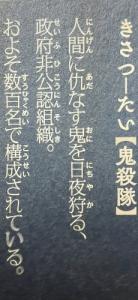 きさつーたい【鬼殺隊】
人間に仇なす鬼を日夜狩る、
政府非公認組織。
およそ数百名で構成されている。